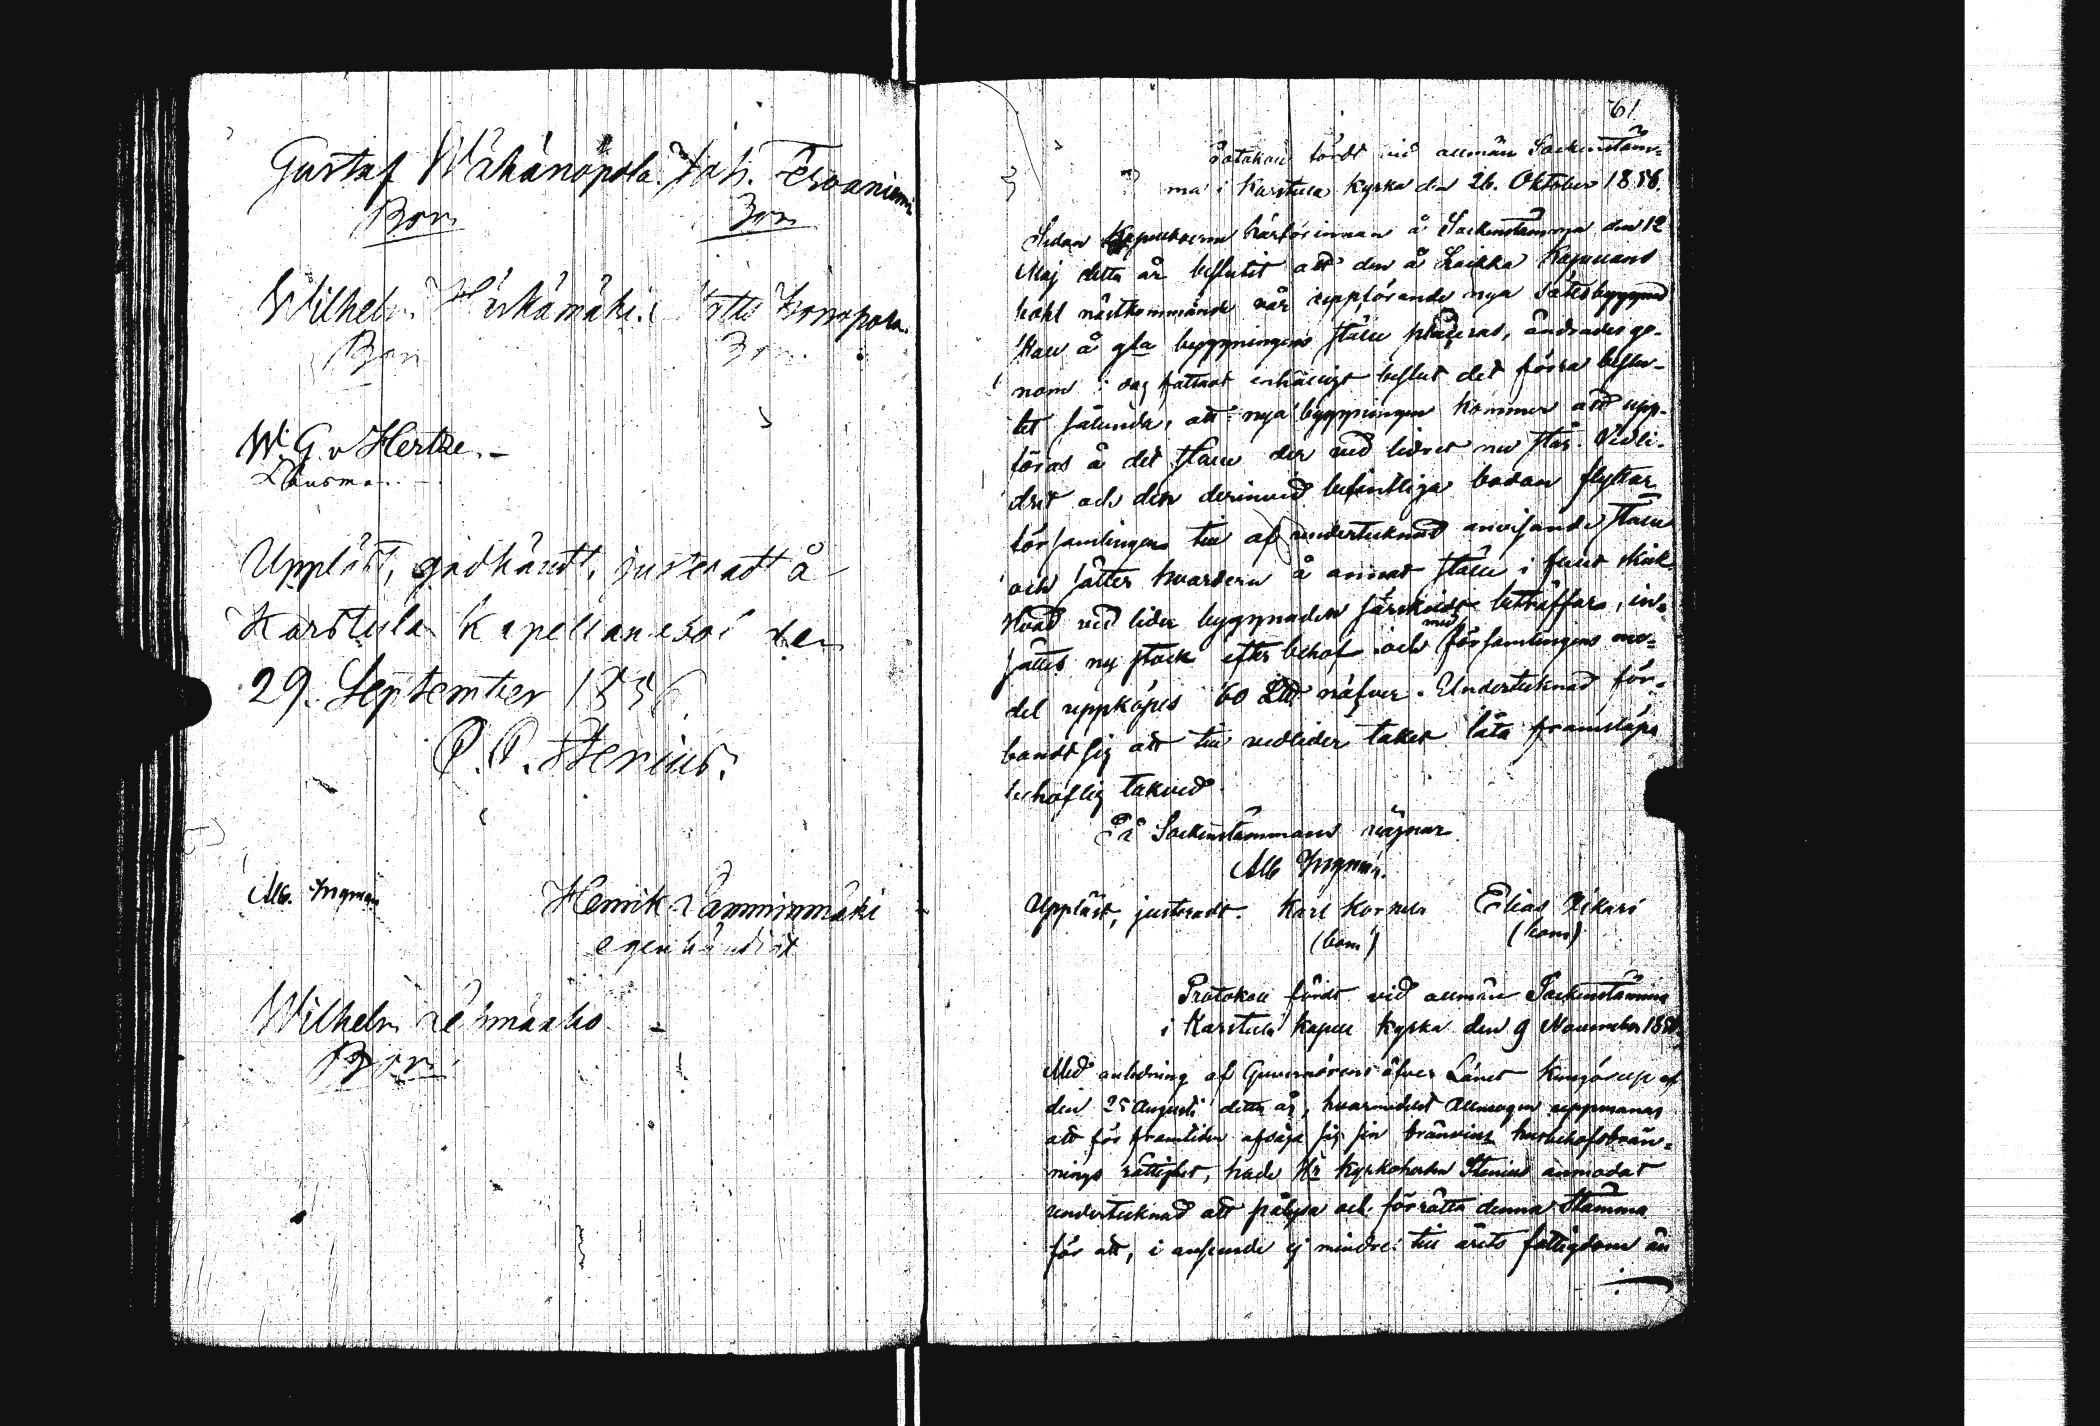 Gustaf Wähänöpola. Joh. Tervaniemi
Bon Bon
Wilhelm Hirkämäki. Kinopola.
Bon Bon.
W. G. v Hertze.
Upplöst, godkändt, justeradt å
Karstula Kapellansbol den
29. September 1856
P. P. Stenius.
Alb. Ingman Henrik Lamminmäki
egenhändigt
Wilhelm Lehmäaho
Bon
61
Protokoll fördt vid allmän Sockenstäm-
ma i Karstula Kyrka den 26. Oktober 1856.
Sedan Kapellboerne härförinnan å Sockenstämma den 12
Maj detta år beslutit att den å Laikka Kapellans
bohl nästkommande vår uppförande nya sätesbyggnad
skall å gla byggningens ställe placeras, ändrades ge-
nom i dag fattadt enhälligt beslut det förra beslu-
tet sålunda, att nya byggningen kommer att upp-
föras å det ställe der vedlidret nu står. Vedli-
dret och den derinvid befintliga bodan flyttar
församlingen till af undertecknad anvisande ställe
och sätter hvardera å annat ställe i fullt skick.
Hvad vedlider byggnaden särskildt beträffar, in-
sättes ny stock efter behof och med församlingens me-
del uppköpes 60 L℔ näfver. Undertecknad för-
bandt sig att till vedlider taket låta framsläpa
behöflig takved.
På Sockenstämmans vägnar
Alb Ingman.
Uppläst, justeradt. Karl Korpela Elias Pikari
(bom) (bom)
Protokoll fördt vid allmän Sockenstämma
i Karstula Kapell Kyrka den 9 November 1856.
Med anledning af Guvernörens öfver Länet Kungörelse af
den 25 Augusti detta år, hvarmedelst Allmogen uppmanas
att för framtiden afsäga sig sin bränvins husbehofsbrän-
nings rättighet, hade Hr Kyrkoherden Stenius anmodat
undertecknad att pålysa och förrätta denna Stämma
för att, i anseende ej mindre till årets fattigdom än